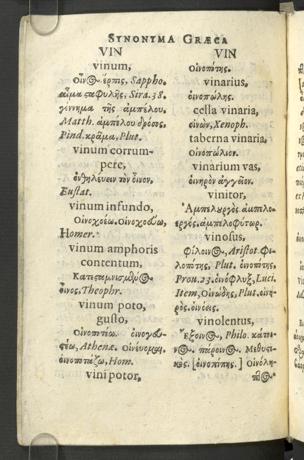 SYNONYMA GRÆCA
VIN
vinum,
Οἶνος. ἕρπις. Sappho.
αἷμα σταφυλῆς. Sira. 38.
γέννημα τῆς ἀμπέλου.
Matth. ἀμπέλου δρόσος.
Pind. κρᾶμα, Plut.
vinum corrum-
pere,
τὸν οἶνον.
Eustat.
vinum infundo,
Οἰνοχοέω. Οἰνοχοεύω,
Homer.
vinum amphoris
contentum,
οἶνος. Theophr.
vinum poto,
gusto,
Athenæ.
Hom.
vini potor,
VIN
οἰνοπότης.
vinarius,
οἰνοπώλης.
cella vinaria,
οἰνών, Xenoph.
taberna vinaria,
οἰνοπώλιον.
vinarium vas,
οἰνηρὸν ἀγγεῖον.
vinitor,
Ἀμπελουργὸς
vinosus,
φίλοινος, Aristot. φι-
λοπότης, Plut. οἰνοπότης,
Prou. 23. οἰνόφλυξ, Luci.
Item, Οἰνώδης, Plut. οἰνη-
ρός.
vinolentus,
Ἔξοινος, Philo. κάτοι-
νος πάροινος. Μεθυστι-
κός. [οἰνοπίπης.] Οἰνόλη-
πτος.